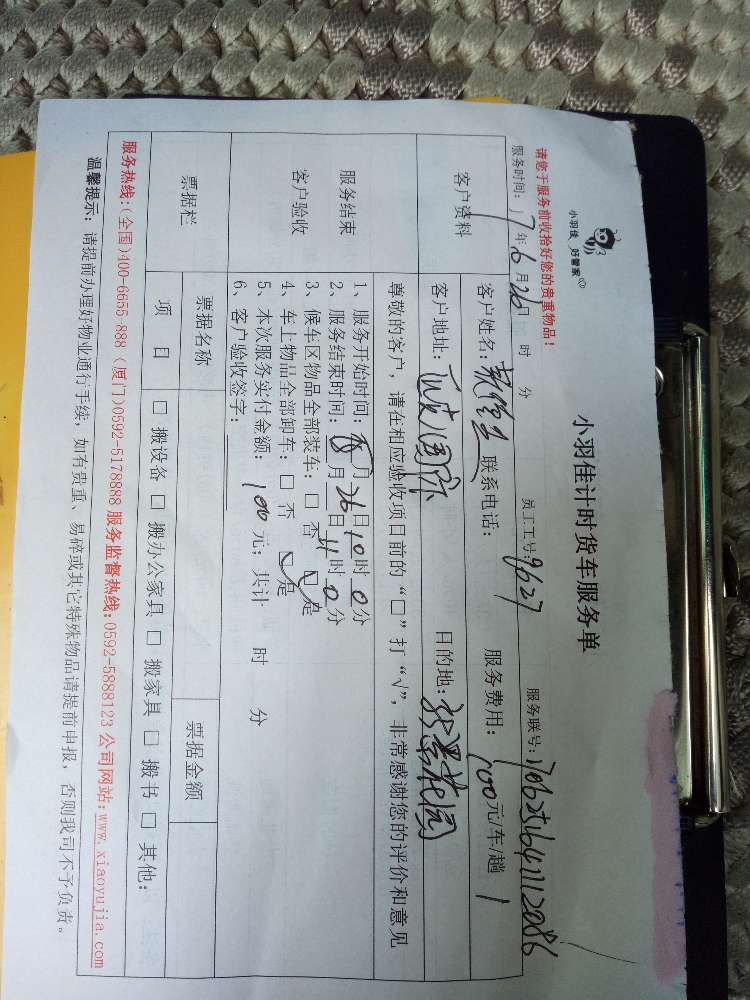 小羽佳 好管家
小羽佳计时货车服务单
请您于服务前收拾好您的贵重物品！
服务时间：17年6月26日 时 分 员工工号：9627 服务联号：
客户资料
客户姓名： 联系电话： 服务费用：100元/车/趟 1
客户地址： 国际 目的地： 花园
服务结束
客户验收
尊敬的客户，请在相应验收项目前的“□”打“√”，非常感谢您的评价和意见
1、服务开始时间： 月26日10时0分
2、服务结束时间： 月 日11时0分
3、候车区物品全部装车：□ 否 ☑ 是
4、车上物品全部卸车：□ 否 ☑ 是
5、本次服务实付金额：100元；共计 时 分
6、客户验收签字：
票据栏
票据名称 票据金额
项 目 □ 搬设备 □ 搬办公家具 □ 搬家具 □ 搬书 □ 其他：
服务热线：(全国)400-6655-888 (厦门)0592-5178888 服务监督热线：0592-5888123 公司网站：www.xiaoyujia.com
温馨提示：请提前办理好物业通行手续，如有贵重、易碎或其它特殊物品请提前申报，否则我司不予负责。